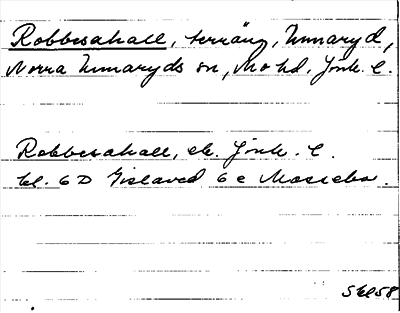 Robbesahall, terräng, Unnaryd,
Norra Unnaryds sn, Mo hd, Jönk. l.
Robbesahall, ek. Jönk. l.
bl. 6D Gislaved 6 e Mossebo.